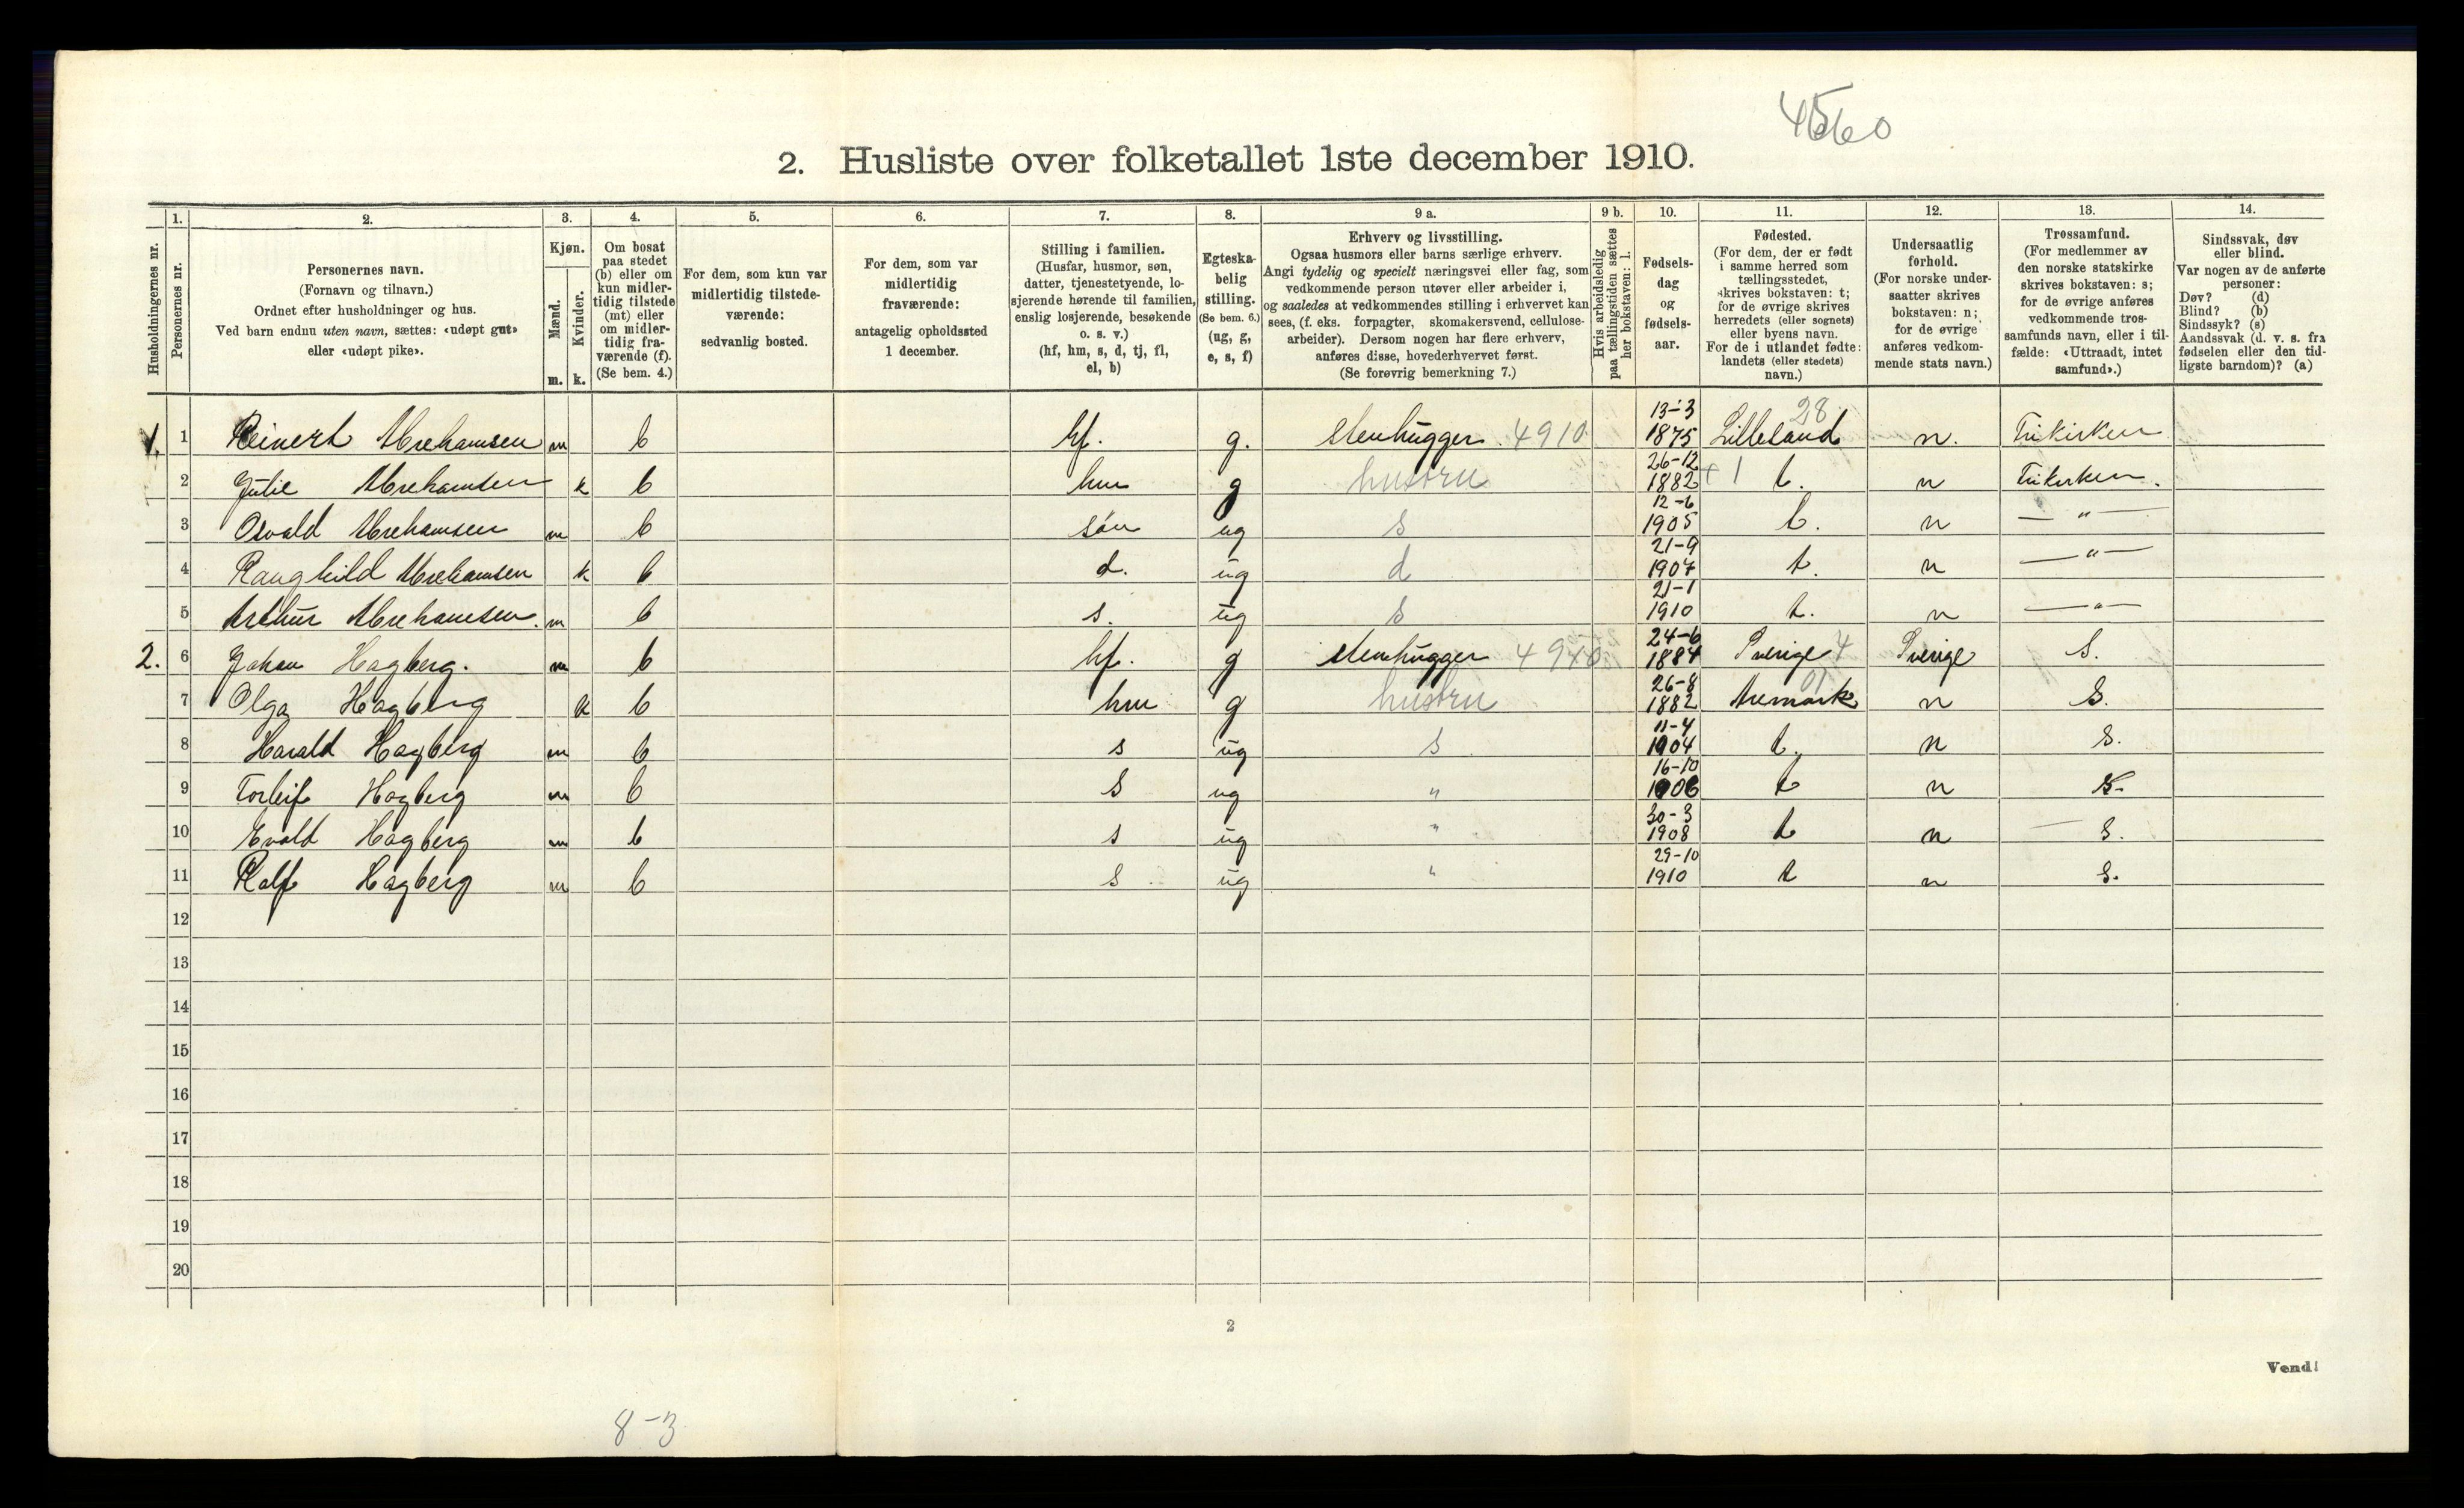 4560
2. Husliste over folketallet 1ste december 1910.
Husholdningernes nr.
1. Personernes nr.
2. Personernes navn. (Fornavn og tilnavn.) Ordnet efter husholdninger og hus. Ved barn endnu uten navn, sættes: «udøpt gut» eller «udøpt pike».
3. Kjøn. Mænd. m. Kvinder. k.
4. Om bosat paa stedet (b) eller om kun midlertidig tilstede (mt) eller om midlertidig fraværende (f). (Se bem. 4.)
5. For dem, som kun var midlertidig tilstedeværende: sedvanlig bosted.
6. For dem, som var midlertidig fraværende: antagelig opholdssted 1 december.
7. Stilling i familien. (Husfar, husmor, søn, datter, tjenestetyende, losjerende hørende til familien, enslig losjerende, besøkende o. s. v.) (hf, hm, s, d, tj, fl, el, b)
8. Egteskabelig stilling. (Se bem. 6.) (ug, g, e, s, f)
9 a. Erhverv og livsstilling. Ogsaa husmors eller barns særlige erhverv. Angi tydelig og specielt næringsvei eller fag, som vedkommende person utøver eller arbeider i, og saaledes at vedkommendes stilling i erhvervet kan sees, (f. eks. forpagter, skomakersvend, cellulosearbeider). Dersom nogen har flere erhverv, anføres disse, hovederhvervet først. (Se forøvrig bemerkning 7.)
9 b. Hvis arbeidsledig paa tællingstiden sættes her bokstaven: l.
10. Fødselsdag og fødselsaar.
11. Fødested. (For dem, der er født i samme herred som tællingsstedet, skrives bokstaven: t; for de øvrige skrives herredets (eller sognets) eller byens navn. For de i utlandet fødte: landets (eller stedets) navn.)
12. Undersaatlig forhold. (For norske undersaatter skrives bokstaven: n; for de øvrige anføres vedkommende stats navn.)
13. Trossamfund. (For medlemmer av den norske statskirke skrives bokstaven: s; for de øvrige anføres vedkommende trossamfunds navn, eller i tilfælde: «Uttraadt, intet samfund».)
14. Sindssvak, døv eller blind. Var nogen av de anførte personer: Døv? (d) Blind? (b) Sindssyk? (s) Aandssvak (d. v. s. fra fødselen eller den tidligste barndom)? (a)
1. 1 Reinert Abrehamsen m b hf. g. stenhugger 4910 13-3 1875 Lillesand 28 n. Frikirken
2 Julie Abrehamsen k b hm g hustru 26-12 1882 + 1 t. n Frikirken.
3 Osvald Abrehamsen m b søn ug s 12-6 1905 t. n — " —
4 Ranghild Abrehamsen k b d. ug d 21-9 1907 t. n — " —
5 Arthur Abrehamsen. m b s. ug s 21-1 1910 t. n — " —
2. 6 Johan Hagberg. m b hf. g stenhugger 4940 24-6 1884 Sverige 4 Sverige S.
7 Olga Hagberg k b hm g hustru 26-8 1882 Aremark 01 n S.
8 Harald Hagberg m b s ug s 11-4 1904 t. n S.
9 Torleif Hagberg m b s ug " 16-10 1906 t n S.
10 Evald Hagberg m b s ug " 30-3 1908 t n S.
11 Ralf Hagberg m b s ug " 29-10 1910 t n S.
12
13
14
15
16
17
18
19
20
2
Vend!
8-3